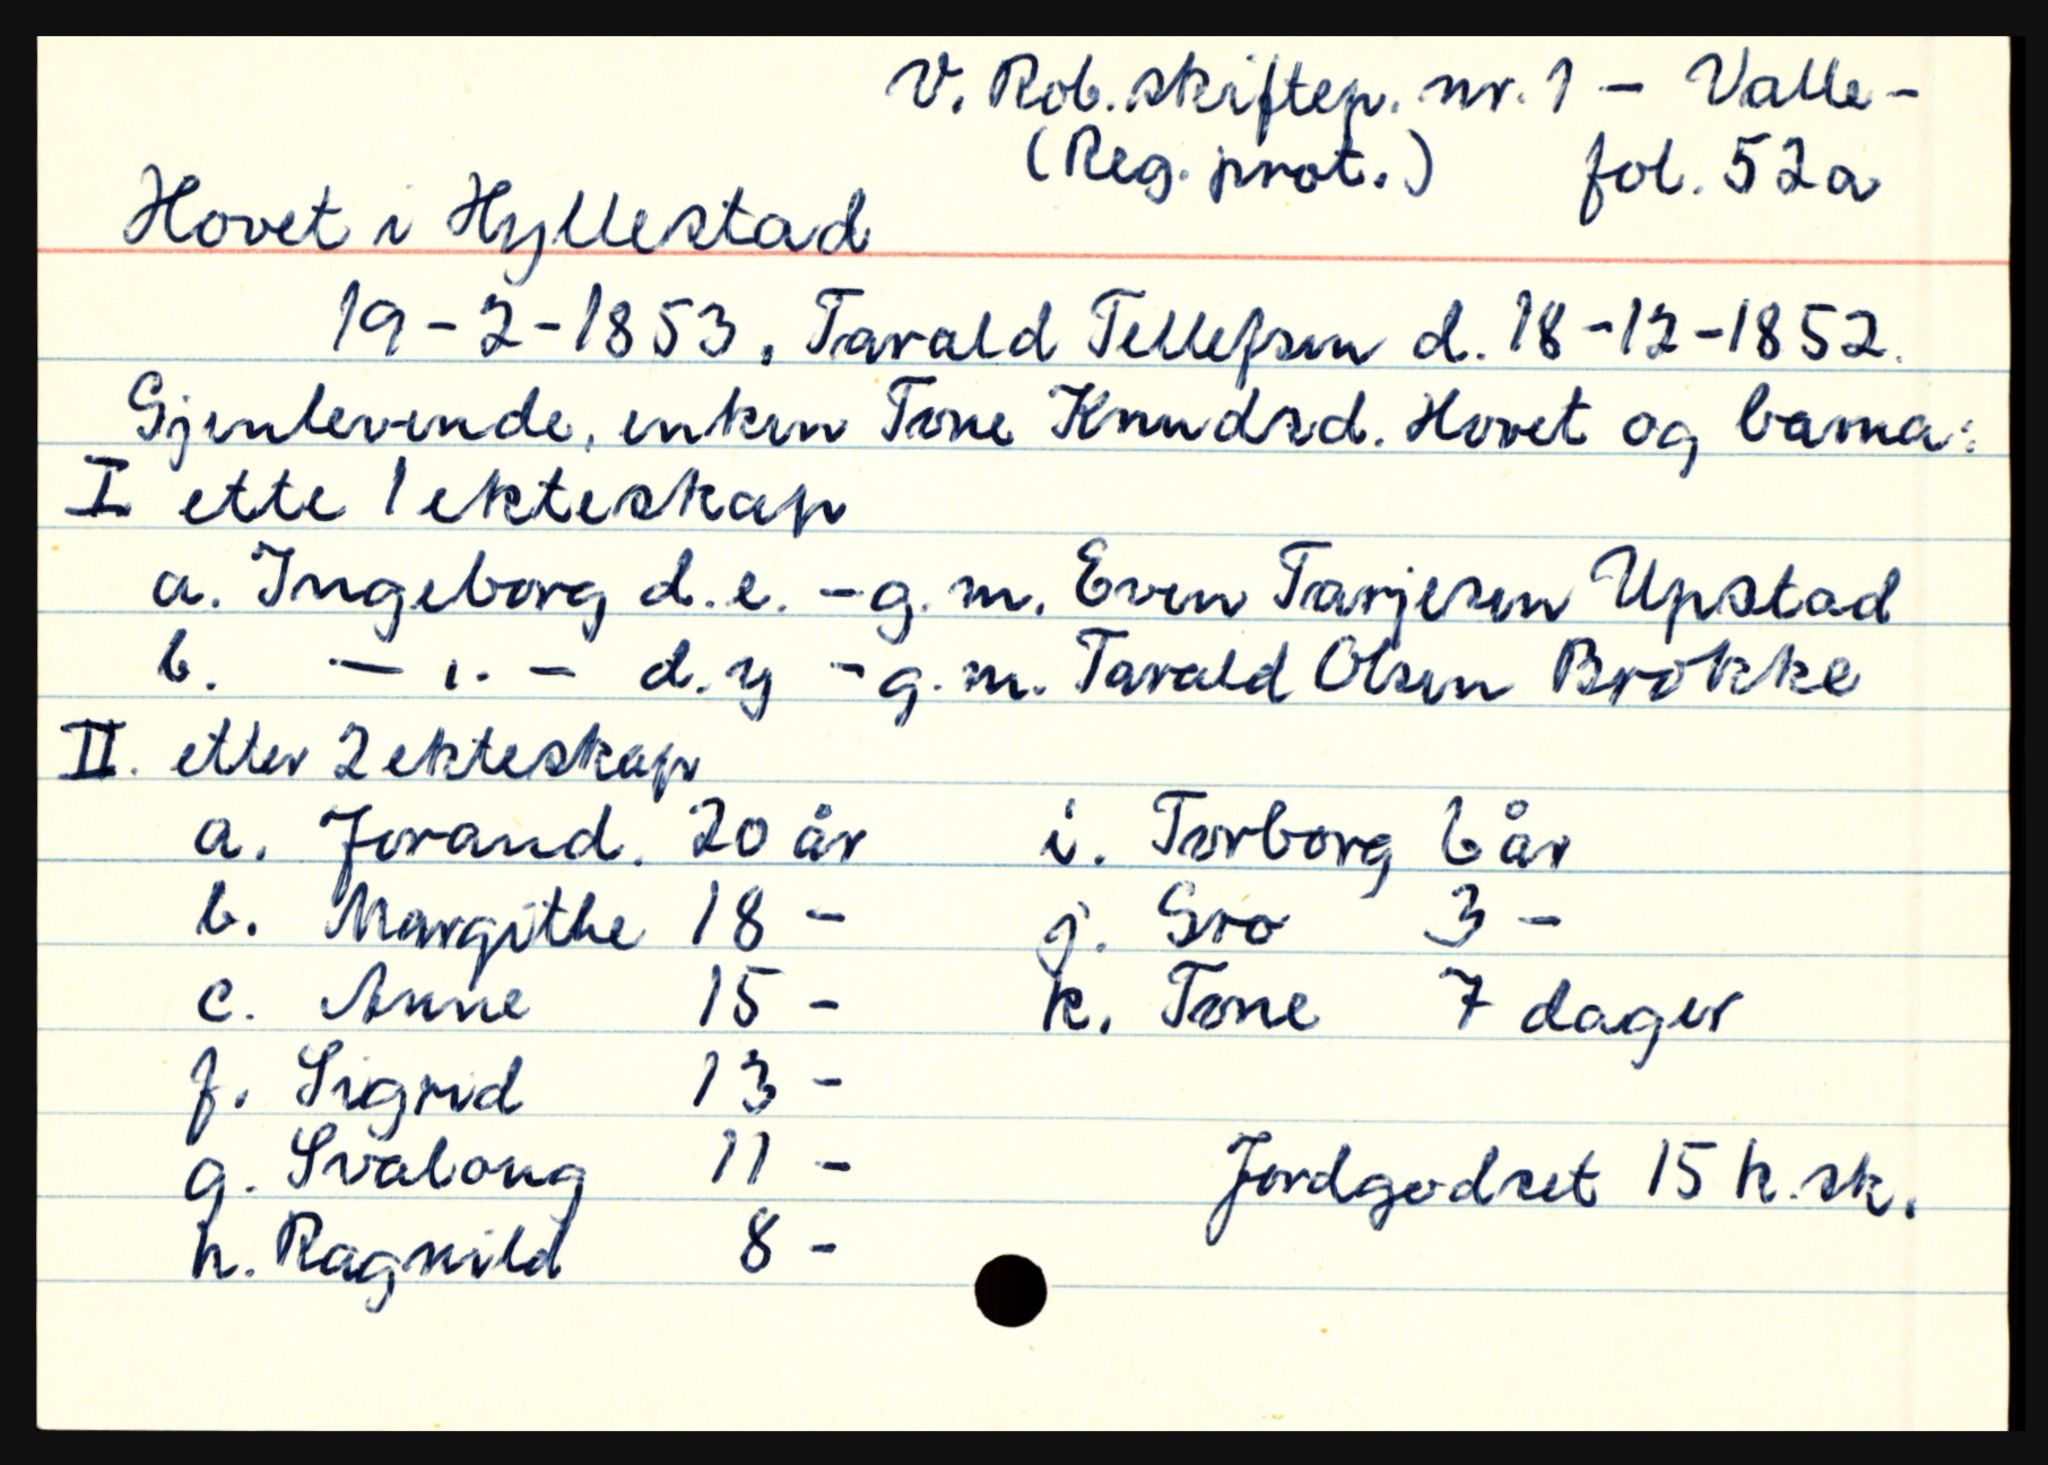 V. Rob. skiftep. nr. 1 - Valle -
(Reg. prot.) fol. 52a
Hovet i Hyllestad
19-2-1853. Tarald Tellefsen d. 18-12-1852.
Gjenlevende, enken Tone Knudsd. Hovet og barna:
I ette 1 ekteskap
a. Ingeborg d.e. - g.m. Even Tarjesen Upstad
b. - " - d.y - g.m. Tarald Olsen Brokke
II. etter 2 ekteskap
a. Jorand. 20 år
b. Margithe 18 -
c. Anne 15 -
f. Sigrid 13 -
g. Svalaug 11 -
h. Ragnild 8 -
i. Torborg 6 år
j. Gro 3 -
k. Tone 7 dager
Jordgodset 15 h. sk.